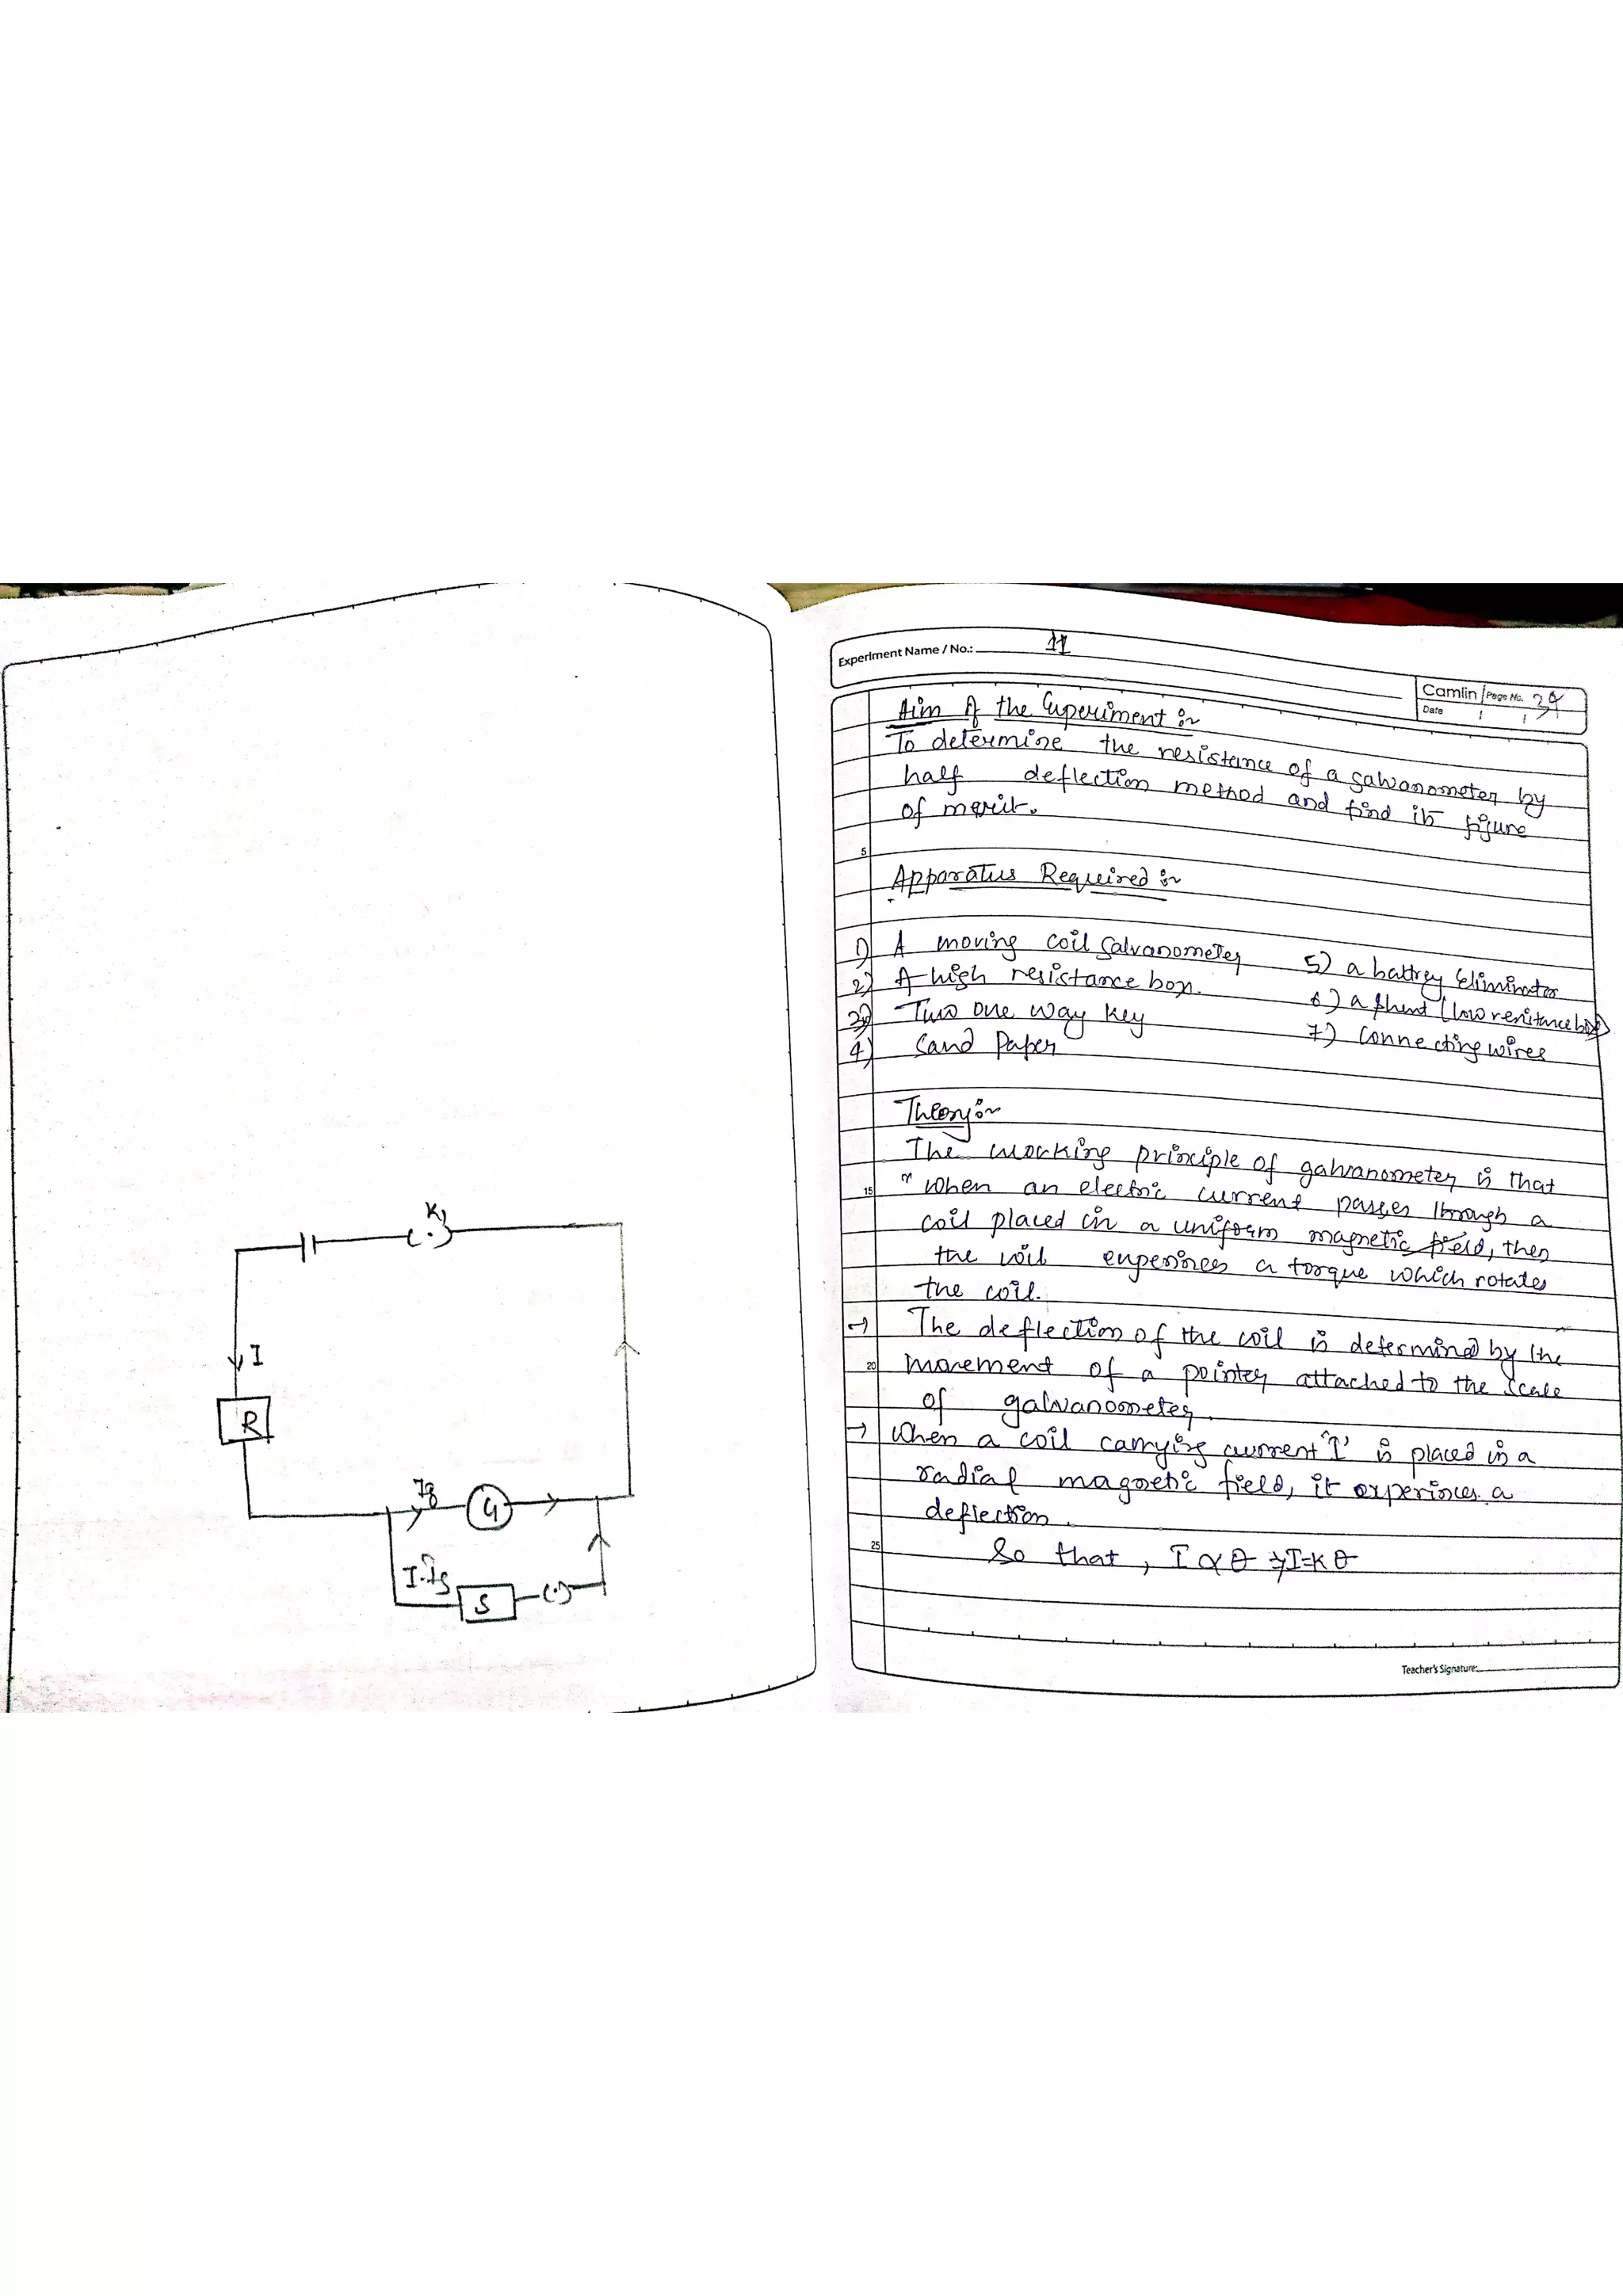 K1
I
R
Ig
G
I-Ig
S
Experiment Name / No.: 11
Camlin Page No.
Date / /
Aim of the Experiment :~
To determine the resistance of a galvanometer by
half deflection method and find its figure
of merit.
5
Apparatus Required :~
1) A moving coil galvanometer
2) A high resistance box.
3) Two one way key
4) Sand Paper
5) a battrey Eliminator
6) a shunt (low resitance box)
7) Connecting wires
Theory :~
The working principle of galvanometer is that
15 " When an electric current passes through a
coil placed in a uniform magnetic field, then
the coil experinces a torque which rotates
the coil.
→ The deflection of the coil is determined by the
20 movement of a pointer attached to the scale
of galvanometer.
→ When a coil carrying current 'I' is placed in a
radial magnetic field, it experinces a
deflection.
25 So that, I ∝ θ ⇒ I=Kθ
Teacher's Signature: